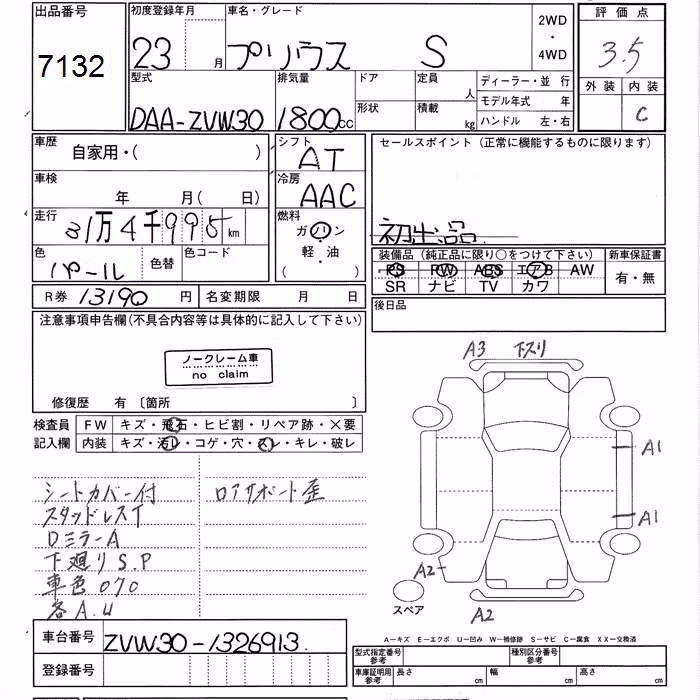 出品番号
7132
初度登録年月
23 月
車名・グレード
プリウス S
2WD
・
4WD
評価点
3.5
外装 内装
C
型式
DAA-ZVW30
排気量
1800cc
ドア
形状
定員 人
積載 kg
ディーラー・並 行
モデル年式 年
ハンドル 左・右
車歴
自家用・( )
シフト
AT
セールスポイント (正常に機能するものに限ります)
初出品
車検
年 月( 日)
冷房
AAC
走行
31万4千995km
燃料
ガソリン
・
軽・油
( )
色
パール
色替
色コード
装備品 (純正品に限り○をつけて下さい)
PS PW ABS エアB AW
SR ナビ TV カワ
新車保証書
有・無
R券 13190 円
名変期限 月 日
後日品
注意事項申告欄(不具合内容等は具体的に記入して下さい)
ノークレーム車
no claim
修復歴 有 〔箇所 〕
検査員
記入欄
FW キズ・飛石・ヒビ割・リペア跡・×要
内装 キズ・汚レ・コゲ・穴・スレ・キレ・破レ
シートカバー付
スタッドレスT
Dミラー A
下廻り S.P
車色 070
各 A.U
ロアサポート歪
A3 下スリ
A1
A1
A2
A2
スペア
A―キズ E―エクボ U―凹み W―補修跡 S―サビ C―腐食 XX―交換済
車台番号 ZVW30-1326913
登録番号
型式指定番号
参考
種別区分番号
参考
車庫証明用
参考
長さ cm
幅 cm
高さ cm